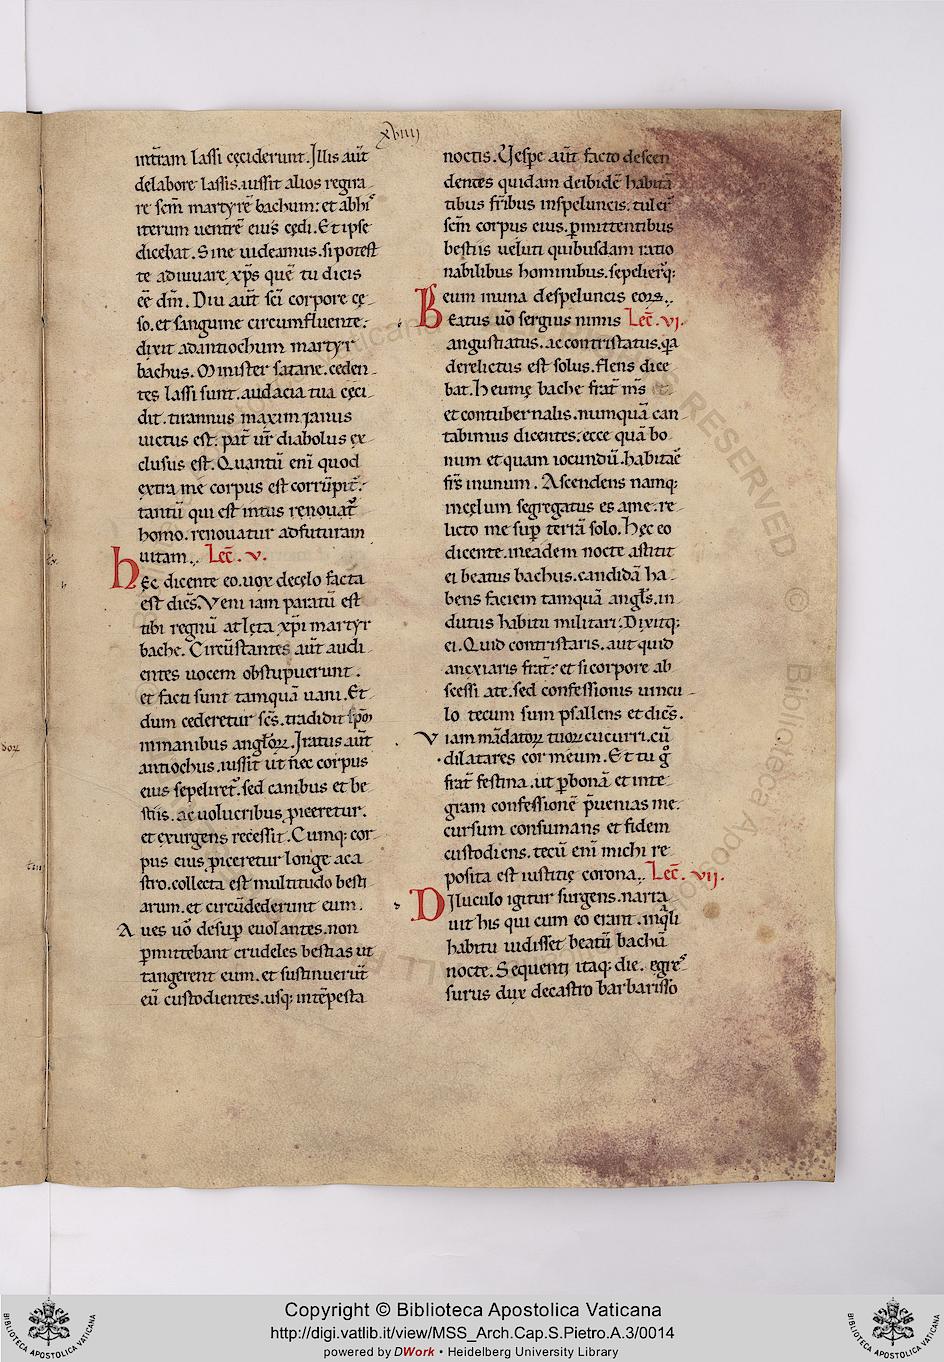 xviiij
intrām lassi cęciderunt. Illis aūt
delabore lassis. iussit alios regira
re scm̄ martyrē bachum: et abhis
iterum uentrē eius cędi. Et ipse
dicebat. Sine uideamus. si potest
te adiuuare xp̄s quē tu dicis
eē dm̄. Diu aūt sc̄i corpore cę
so. et sanguine circumfluente.
dixit adantiochum martyr
bachus. Minister satane. ceden
tes lassi sunt. audacia tua cęci
dit. tirannus maximianus
uictus est. pat̄ ur̄ diabolus ex
clusus est. Quantū enī quod
extra me corpus est corrūpit̄.
tantū qui est intus renouat̄
homo. renouatur adfuturam
uitam. Lec̄. v.
hęc dicente eo. uox decęlo facta
est dicēs. Veni iam paratū est
tibi regnū atlęta xp̄i martyr
bache. Circūstantes aūt audi
entes uocem obstupuerunt.
et facti sunt tamquā uani. Et
dum cederetur sc̄s. tradidit sp̄m
inmanibus angl̄oꝝ. Iratus aūt
antiochus. iussit ut nec corpus
eius sepeliret̄. sed canibus et be
stiis. ac uolucribus ꝓiceretur.
et exurgens recessit. Cumq; cor
pus eius ꝓiceretur longe aca
stro. collecta est multitudo besti
arum. et circūdederunt eum.
Aues uō desuꝑ euolantes. non
ꝑmittebant crudeles bestias ut
tangerent eum. et sustinuerūt
eū custodientes. usq; intēpesta
noctis. Vespe aūt facto descen
dentes quidam deibidē habitā
tibus fr̄ibus inspeluncis. tuler̄
scm̄ corpus eius. ꝑmittentibus
bestiis ueluti quibusdam ratio
nabilibus hominibus. sepelier̄q;
eum inuna despeluncis eoꝝ.
Beatus uō sergius nimis Lec̄. vi.
angustiatus. ac contristatus. qa
derelictus est solus. flens dice
bat. Heu me bache frat̄ ms̄
et contubernalis. numquā can
tabimus dicentes. ecce quā bo
num et quam iocundū. habitare
frs̄ inunum. Ascendens namq;
incęlum segregatus es ame. re
licto me suꝑ terrā solo. Hęc eo
dicente. ineadem nocte astitit
ei beatus bachus. candidā ha
bens faciem tamquā angl̄s. in
dutus habitu militari. Dixitq;
ei. Quid contristaris. aut quid
anexiaris frat̄: et si corpore ab
scessi ate. sed confessionis uincu
lo tecum sum psallens et dicēs.
Viam mādatoꝝ tuoꝝ cucurri. cū
dilatares cor meum. Et tu g̊
frat̄ festina. ut ꝑ bonā et inte
gram confessionē p̄uenias me.
cursum consumans et fidem
custodiens. tecū enī michi re
posita est iustitię corona. Lec̄. vij.
Diluculo igitur surgens. narra
uit his qui cum eo erant. inq̄li
habitu uidisset beatū bachū
nocte. Sequenti itaq; die. egres
surus dux decastro barbarisso
Copyright © Biblioteca Apostolica Vaticana
http://digi.vatlib.it/view/MSS_Arch.Cap.S.Pietro.A.3/0014
powered by DWork • Heidelberg University Library